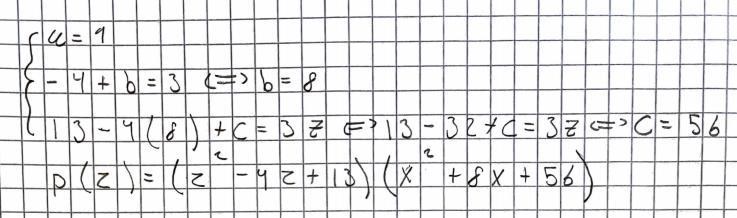 { a = 1
- 4 + b = 3 <=> b = 8
13 - 4(8) + c = 37 <=> 13 - 32 + c = 37 <=> c = 56
p(z) = (z² - 4z + 13)(x² + 8x + 56)